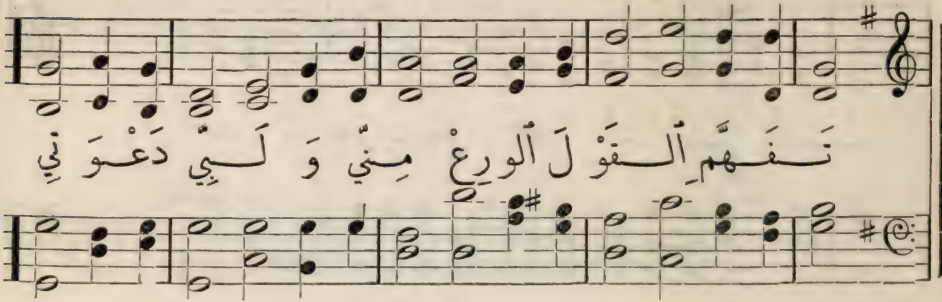 تَـفَـهَّمِ ٱلـقَوْ لَ ٱلورِعْ مِـنّي وَ لَـبِّي دَعْـوَ تِي